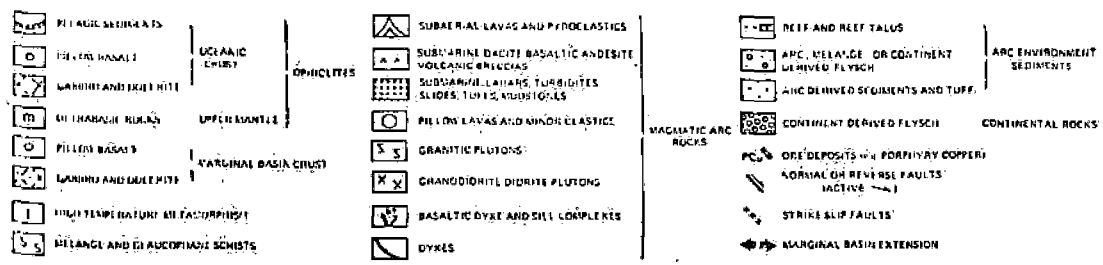 PELAGIC SEDIMENTS
PILLOW BASALT
GABBRO AND DOLERITE
OCEANIC
CRUST
OPHIOLITES
m ULTRABASIC ROCKS
UPPER MANTLE
PILLOW BASALT
GABBRO AND DOLERITE
MARGINAL BASIN CRUST
HIGH TEMPERATURE METAMORPHISM
S S MELANGE AND GLAUCOPHANE SCHISTS
SUBAERIAL LAVAS AND PYROCLASTICS
SUBMARINE DACITE BASALTIC ANDESITE
VOLCANIC BRECCIAS
SUBMARINE LAHARS, TURBIDITES
SLIDES, TUFFS, MUDSTONES
PILLOW LAVAS AND MINOR CLASTICS
S S GRANITIC PLUTONS
X X GRANODIORITE DIORITE PLUTONS
BASALTIC DYKE AND SILL COMPLEXES
DYKES
MAGMATIC ARC
ROCKS
REEF AND REEF TALUS
ARC, MELANGE OR CONTINENT
DERIVED FLYSCH
ARC DERIVED SEDIMENTS AND TUFF
ARC ENVIRONMENT
SEDIMENTS
CONTINENT DERIVED FLYSCH
CONTINENTAL ROCKS
PCu ORE DEPOSITS (e.g. PORPHYRY COPPER)
NORMAL OR REVERSE FAULTS
(ACTIVE )
STRIKE SLIP FAULTS
MARGINAL BASIN EXTENSION